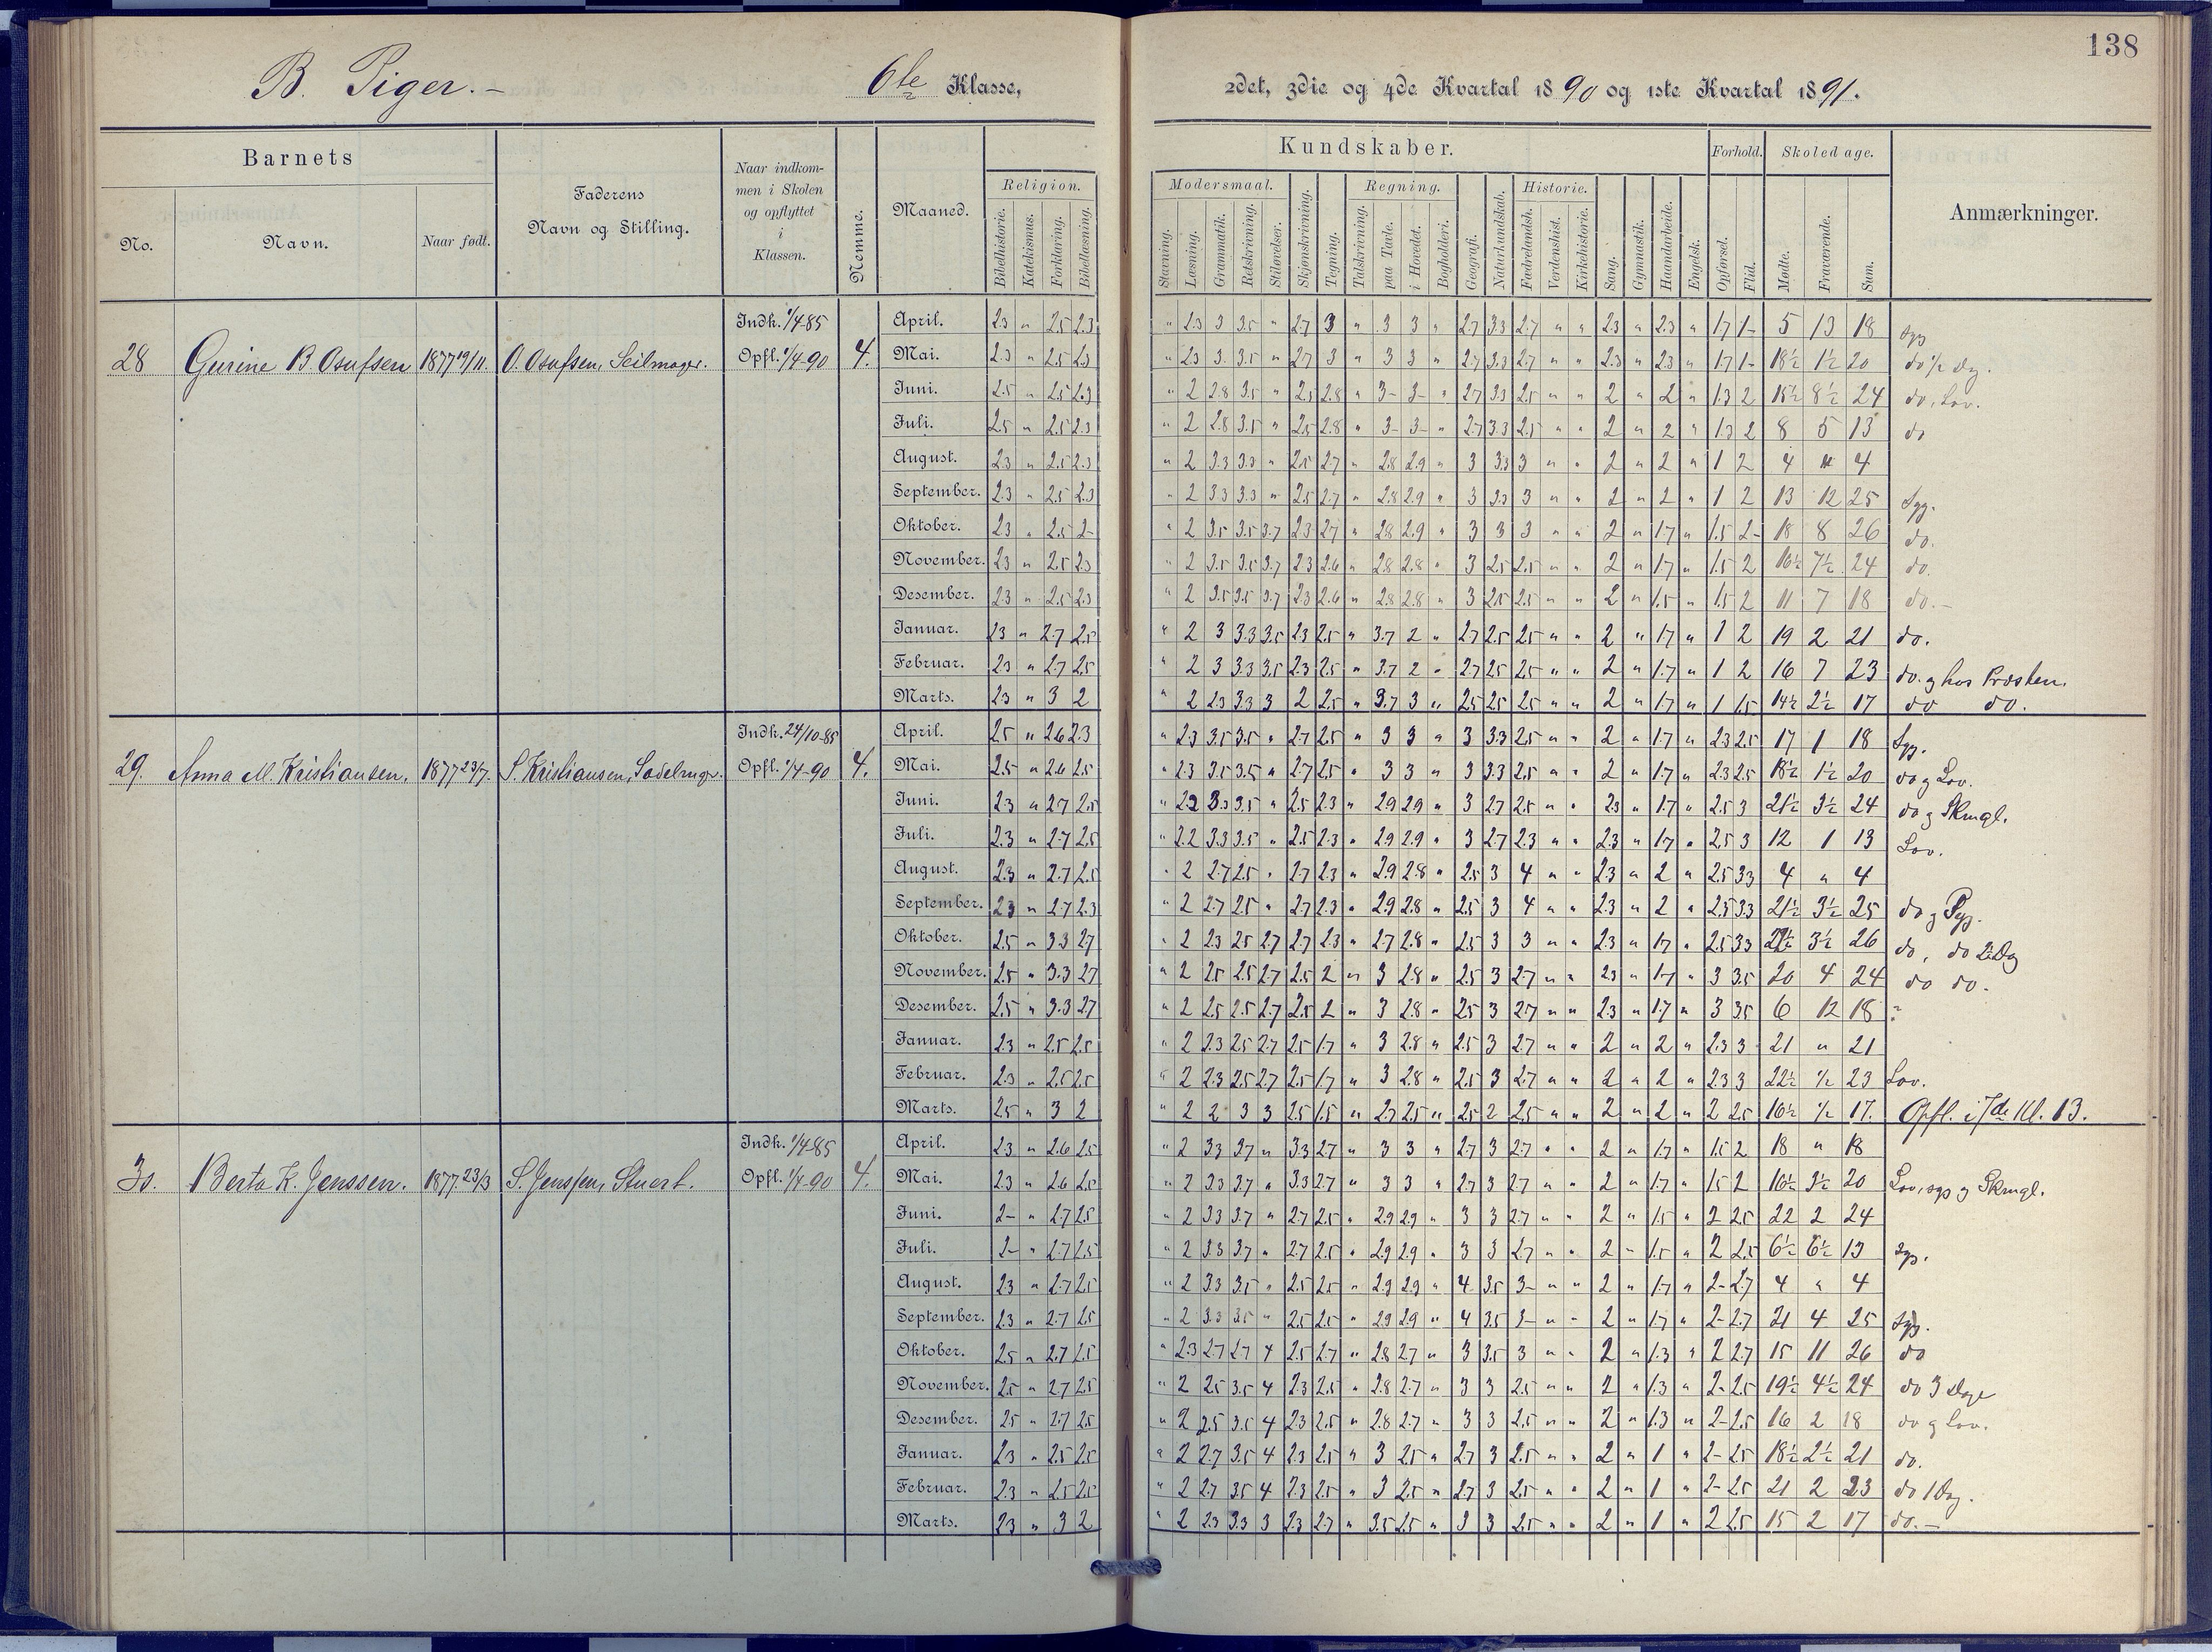 138
B. Piger. –
6te Klasse,
2det, 3die og 4de Kvartal 1890 og 1ste Kvartal 1891.
Barnets
No.
Navn.
Naar født.
Faderens
Navn og Stilling.
Naar indkom-
men i Skolen
og opflyttet
i
Klassen.
Nemme.
Maaned.
Kundskaber.
Religion.
Bibelhistorie.
Katekismus.
Forklaring.
Bibellæsning.
Modersmaal.
Stavning.
Læsning.
Grammatik.
Retskrivning.
Stiløvelser.
Skjønskrivning.
Tegning.
Regning.
Talskrivning.
paa Tavle.
i Hovedet.
Bogholderi.
Geografi.
Naturkundskab.
Historie.
Fædrelandsh.
Verdenshist.
Kirkehistorie.
Sang.
Gymnastik.
Haandarbeide.
Engelsk.
Forhold.
Opførsel.
Flid.
Skoledage.
Mødte.
Fraværende.
Sum.
Anmærkninger.
28 Gurine B. Osufsen 1877 19/11. O. Osufsen, Seilmager. Indk. 1/4-85 Opfl. 1/4-90 4.
April. 2.3 " 2.5 2.3 " 2.3 3 3.5 " 2.7 3 " 3 3 " 2.7 3.3 2.7 " " 2.3 " 2.3 " 1.7 1- 5 13 18 Syg
Mai. 2.3 " 2.5 2.3 " 2.3 3 3.5 " 2.7 3 " 3 3 " 2.7 3.3 2.7 " " 2.3 " 2.3 " 1.7 1- 18½ 1½ 20 do ½ Dg.
Juni. 2.5 " 2.5 2.3 " 2 2.8 3.5 " 2.5 2.8 " 3- 3- " 2.7 3.3 2.5 " " 2 " 2 " 1.3 2 15½ 8½ 24 do, Lov.
Juli. 2.5 " 2.5 2.3 " 2 2.8 3.5 " 2.5 2.8 " 3- 3- " 2.7 3.3 2.5 " " 2 " 2 " 1.3 2 8 5 13 do
August. 2.3 " 2.5 2.3 " 2 3.3 3.3 " 2.5 2.7 " 2.8 2.9 " 3 3.3 3 " " 2 " 2 " 1 2 4 " 4
September. 2.3 " 2.5 2.3 " 2 3.3 3.3 " 2.5 2.7 " 2.8 2.9 " 3 3.3 3 " " 2 " 2 " 1 2 13 12 25 Syg.
Oktober. 2.3 " 2.5 2- " 2 3.5 3.5 3.7 2.3 2.7 " 2.8 2.9 " 3 3 3 " " 2 " 1.7 " 1.5 2- 18 8 26 do.
November. 2.3 " 2.5 2.3 " 2 3.5 3.5 3.7 2.3 2.6 " 2.8 2.8 " 3 2.5 2.5 " " 2 " 1.7 " 1.5 2 16½ 7½ 24 do.
Desember. 2.3 " 2.5 2.3 " 2 3.5 3.5 3.7 2.3 2.6 " 2.8 2.8 " 3 2.5 2.5 " " 2 " 1.5 " 1.5 2 11 7 18 do. –
Januar. 2.3 " 2.7 2.5 " 2 3 3.3 3.5 2.3 2.5 " 3.7 2 " 2.7 2.5 2.5 " " 2 " 1.7 " 1 2 19 2 21 do.
Februar. 2.3 " 2.7 2.5 " 2 3 3.3 3.5 2.3 2.5 " 3.7 2 " 2.7 2.5 2.5 " " 2 " 1.7 " 1 2 16 7 23 do. og hos Præsten.
Marts. 2.3 " 3 2 " 2 2.3 3.3 3 2 2.5 " 3.7 3 " 2.5 2.5 2.5 " " 2 " 1.7 " 1 1.5 14½ 2½ 17 do do.
29. Anna M. Kristiansen. 1877 23/7. S. Kristiansen, Sadelmager. Indk. 24/10-85 Opfl. 1/4-90 4.
April. 2.5 " 2.6 2.3 " 2.3 3.5 3.5 " 2.7 2.5 " 3 3 " 3 3.3 2.5 " " 2 " 1.7 " 2.3 2.5 17 1 18 Syg.
Mai. 2.5 " 2.6 2.5 " 2.3 3.5 3.5 " 2.7 2.5 " 3 3 " 3 3.3 2.5 " " 2 " 1.7 " 2.3 2.5 18½ 1½ 20 do og Lov.
Juni. 2.3 " 2.7 2.5 " 2.2 3.3 3.5 " 2.5 2.3 " 2.9 2.9 " 3 2.7 2.5 " " 2.3 " 1.7 " 2.5 3 21½ 3½ 24 do og Skmgl.
Juli. 2.3 " 2.7 2.5 " 2.2 3.3 3.5 " 2.5 2.3 " 2.9 2.9 " 3 2.7 2.3 " " 2.3 " 1.7 " 2.5 3 12 1 13 Lov.
August. 2.3 " 2.7 2.5 " 2 2.7 2.5 " 2.7 2.3 " 2.9 2.8 " 2.5 3 4 " " 2.3 " 2 " 2.5 3.3 4 " 4
September. 2.3 " 2.7 2.3 " 2 2.7 2.5 " 2.7 2.3 " 2.9 2.8 " 2.5 3 4 " " 2.3 " 2 " 2.5 3.3 21½ 3½ 25 do og Syg.
Oktober. 2.5 " 3.3 2.7 " 2 2.3 2.5 2.7 2.7 2.3 " 2.7 2.8 " 2.5 3 3 " " 2.3 " 1.7 " 2.5 3.3 22½ 3½ 26 do, do 2 Dg
November. 2.5 " 3.3 2.7 " 2 2.5 2.5 2.7 2.5 2 " 3 2.8 " 2.5 3 2.7 " " 2.3 " 1.7 " 3 3.5 20 4 24 do do.
Desember. 2.5 " 3.3 2.7 " 2 2.5 2.5 2.7 2.5 2 " 3 2.8 " 2.5 3 2.7 " " 2.3 " 1.7 " 3 3.5 6 12 18 ?
Januar. 2.3 " 2.5 2.5 " 2 2.3 2.5 2.7 2.5 1.7 " 3 2.8 " 2.5 3 2.7 " " 2 " 2 " 2.3 3 21 " 21
Februar. 2.3 " 2.5 2.5 " 2 2.3 2.5 2.7 2.5 1.7 " 3 2.8 " 2.5 3 2.7 " " 2 " 2 " 2.3 3 22½ ½ 23 Lov.
Marts. 2.5 " 3 2 " 2 2 3 3 2.5 1.5 " 2.7 2.5 " 2.5 2 2.5 " " 2 " 2 " 2 2.5 16½ ½ 17. Opfl. i 7de Kl. B.
30. Berta K. Jenssen. 1877. 23/3 S. Jenssen, Stuert. Indk. 1/4-85 Opfl. 1/4-90 4.
April. 2.3 " 2.6 2.5 " 2 3.3 3.7 " 3.3 2.7 " 3 3 " 2.7 3 2.7 " " 2 " 1.7 " 1.5 2 18 " 18
Mai. 2.3 " 2.6 2.5 " 2 3.3 3.7 " 3.3 2.7 " 3 3 " 2.7 3 2.7 " " 2 " 1.7 " 1.5 2 16½ 3½ 20 Lov, syg og Skmgl.
Juni. 2- " 2.7 2.5 " 2 3.3 3.7 " 2.7 2.5 " 2.9 2.9 " 3 3 2.7 " " 2 " 1.5 " 2 2.5 22 2 24
Juli. 2- " 2.7 2.5 " 2 3.3 3.7 " 2.7 2.5 " 2.9 2.9 " 3 3 2.7 " " 2 " 1.5 " 2 2.5 6½ 6½ 13 Syg.
August. 2.3 " 2.7 2.5 " 2 3.3 3.5 " 2.5 2.5 " 2.9 2.9 " 4 3.5 3- " " 2 " 1.7 " 2- 2.7 4 " 4
September. 2.3 " 2.7 2.5 " 2 3.3 3.5 " 2.5 2.5 " 2.9 2.9 " 4 3.5 3- " " 2 " 1.7 " 2- 2.7 21 4 25 Syg.
Oktober. 2.5 " 2.7 2.5 " 2.3 2.7 2.7 4 2.5 2.7 " 2.8 2.7 " 3 3.5 3 " " 2 " 1.3 " 2 2.7 15 11 26 do
November. 2.5 " 2.7 2.5 " 2 2.5 3.5 4 2.3 2.5 " 2.8 2.7 " 3 3 2.5 " " 2 " 1.3 " 2- 2.5 19½ 4½ 24 do 3 Dage
Desember. 2.5 " 2.7 2.5 " 2 2.5 3.5 4 2.3 2.5 " 2.8 2.7 " 3 3 2.5 " " 2 " 1.3 " 2- 2.5 16 2 18 do og Lov.
Januar. 2.3 " 2.5 2.5 " 2 2.7 3.5 4 2.3 2.5 " 3 2.5 " 2.7 3 2.5 " " 2 " 1 " 2- 2.5 18½ 2½ 21 do.
Februar. 2.3 " 2.5 2.5 " 2 2.7 3.5 4 2.3 2.5 " 3 2.5 " 2.7 3 2.5 " " 2 " 1 " 2- 2.5 21 2 23 do 1 Dg.
Marts. 2.3 " 3 2 " 2 2.3 3.3 3 2.3 2.7 " 3.5 2.5 " 3 3 2.5 " " 2 " 1 " 2 2.5 15 2 17 do. –